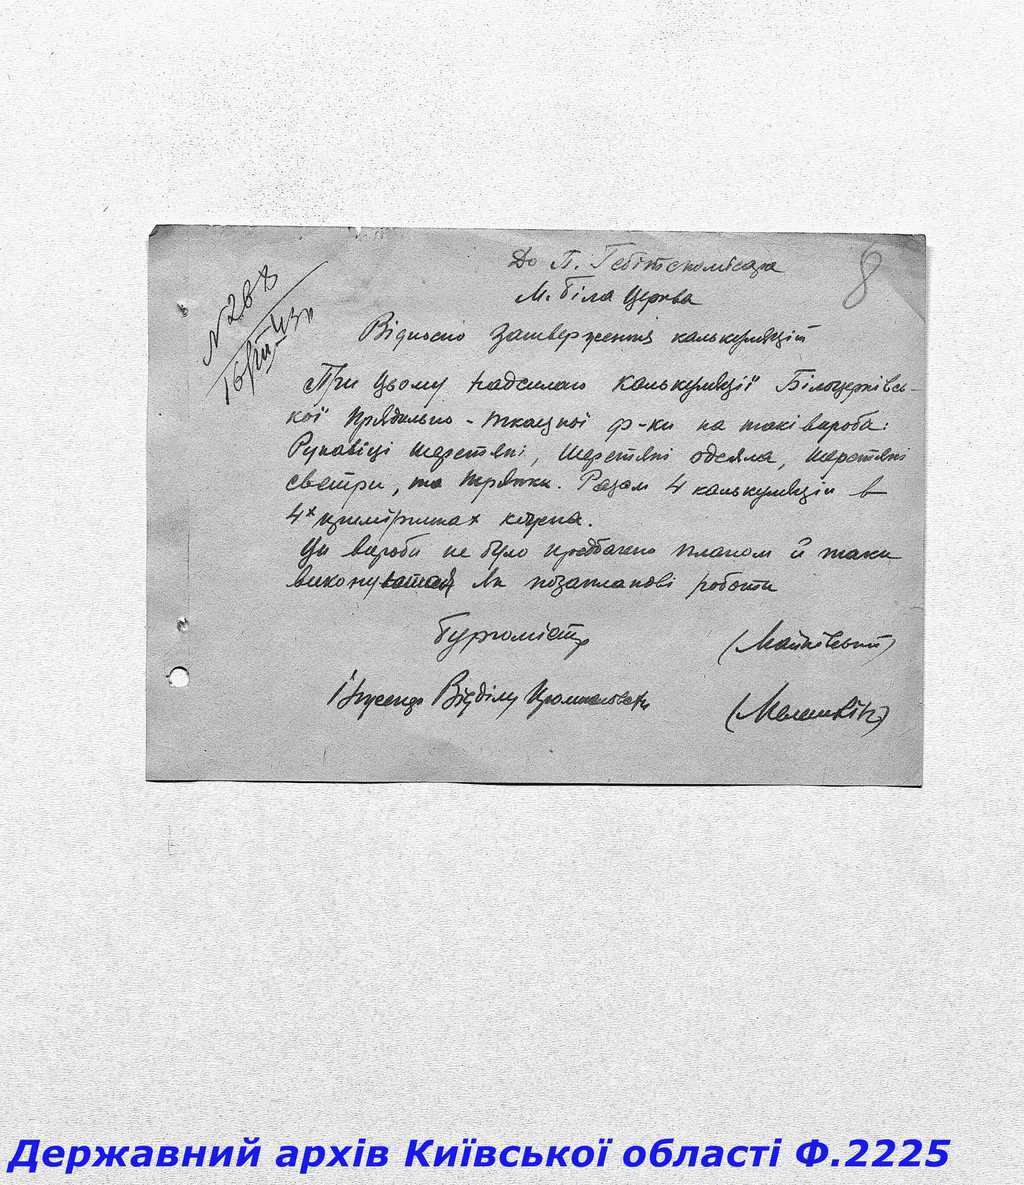 N 268
16/VII-43р
8
До П. Гебітскомісара
м. Біла Церква
Відносно затвердження калькуляцій
При цьому надсилаю калькуляції Білоцерківсь-
кої прядильно-ткацької ф-ки на такі вироба:
Рукавіці шерстяні, шерстяні одеяла, шерстяні
светри, та тряпки. Разом 4 калькуляції в
4х примірниках кожна.
Ці вироби не було предбачено планом й таки
виконувались як позапланові роботи
Бургомістр
(Майківський)
Відділу
Державний архів Київської області Ф.2225